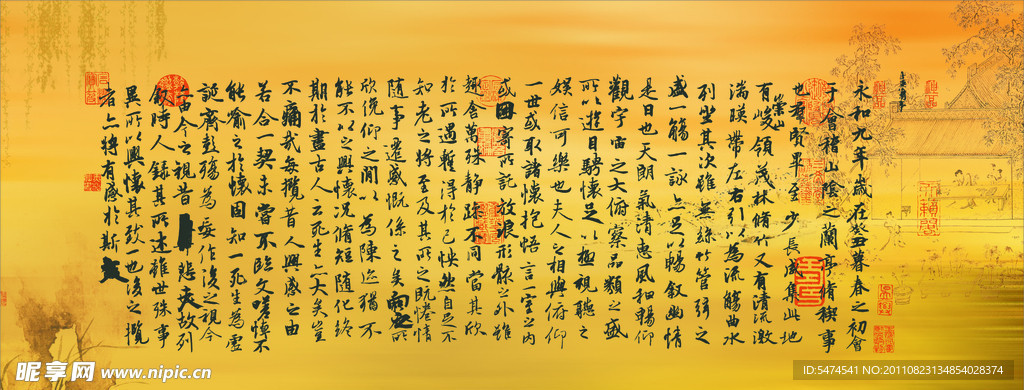 永和九年歲在癸丑暮春之初會
于會稽山陰之蘭亭脩稧事
也羣賢畢至少長咸集此地
有崇山峻領茂林脩竹又有清流激
湍暎帶左右引以為流觴曲水
列坐其次雖無絲竹管弦之
盛一觴一詠亦足以暢叙幽情
是日也天朗氣清惠風和暢仰
觀宇宙之大俯察品類之盛
所以遊目騁懷足以極視聽之
娛信可樂也夫人之相與俯仰
一世或取諸懷抱悟言一室之內
或因寄所託放浪形骸之外雖
趣舍萬殊靜躁不同當其欣
於所遇暫得於己怏然自足不
知老之將至及其所之既惓情
隨事遷感慨係之矣向之所
欣俛仰之閒以為陳迹猶不
能不以之興懷況脩短隨化終
期於盡古人云死生亦大矣豈
不痛哉每攬昔人興感之由
若合一契未嘗不臨文嗟悼不
能喻之於懷固知一死生為虛
誕齊彭殤為妄作後之視今
亦由今之視昔悲夫故列
叙時人錄其所述雖世殊事
異所以興懷其致一也後之攬
者亦將有感於斯文
昵享网 www.nipic.cn
ID:5474541 NO:20110823134854028374